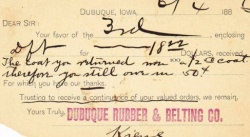 DUBUQUE, IOWA, 188
Your favor of the 3rd enclosing
Dft 18 22 DOLLARS, received.
The coat you returned was a
therefore you still owe us 50¢
For which you have our thanks.
Trusting to receive a continuance of your valued orders, we remain,
Yours Truly, DUBUQUE RUBBER & BELTING CO.